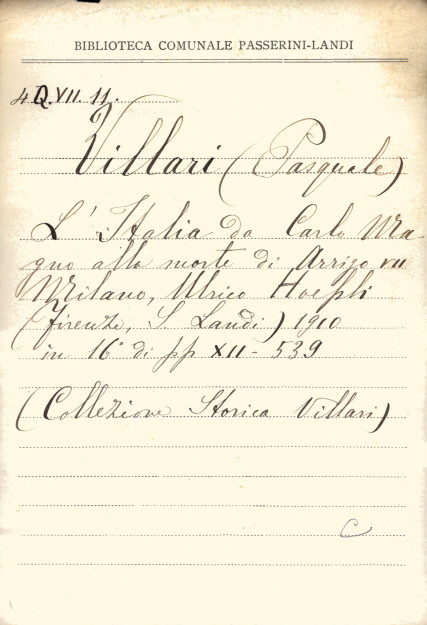 BIBLIOTECA COMUNALE PASSERINI-LANDI
4Q.VII. 11.
Villari (Pasquale)
L'Italia da Carlo Ma-
gno alla morte di Arrigo VII
Milano, Ulrico Hoepli
(Firenze, S. Landi) 1910
in 16° di pp XII - 539
(Collezione Storica Villari)
C